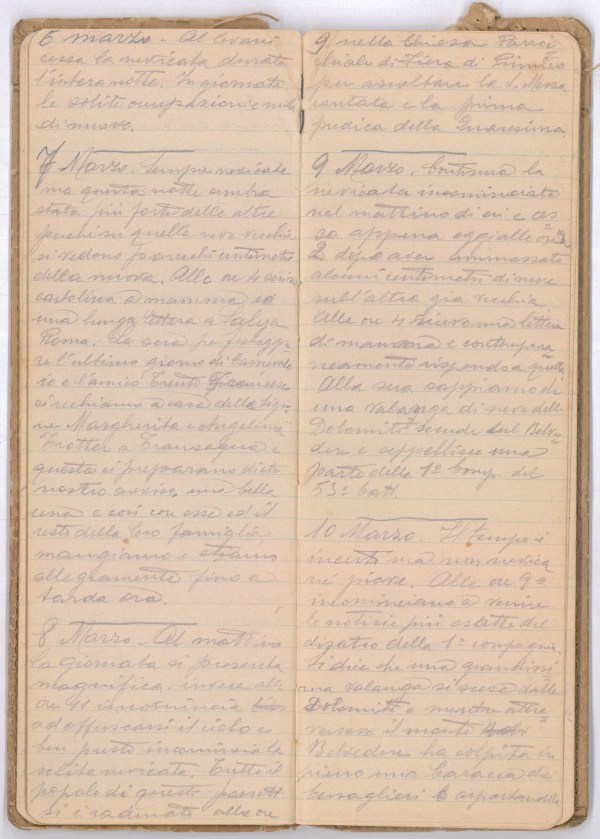 6 marzo. Al levarci
cessa la nevicata durata
l'intera notte. In giornata
le solite occupazioni e nulla
di nuovo.
7 Marzo. Sempre nevicate
ma questa notte sembra
stata più forte delle altre
perchè su quella neve vecchia
si vedono parecchi centimetri
della nuova. Alle ore 4 scrivo
cartolina a mamma ed
una lunga lettera a
Roma. La sera per festeggia
re l'ultimo giorno di Carneva
le io e l'amico Trento Francesco
ci rechiamo a casa delle signo
rine Margherita e Angelina
Trotter a Transacqua e
queste ci preparano dietro
nostro avviso una bella
cena e così con esse ed il
resto della loro famiglia
mangiamo e stiamo
allegramente fino a
tarda ora.
8 Marzo. Al mattino
la giornata si presenta
magnifica, invece alle
ore 11 incomincia
ad offuscarsi il cielo e
ben presto incomincia la
solita nevicata. Tutto il
popolo di questo paese
si è radunato alle ore
9 nella Chiesa Parroc
chiale di Fiera di Primiero
per ascoltare la S. Messa
cantata e la prima
predica della Quaresima.
9 Marzo. Continua la
nevicata incominciata
nel mattino di ieri e ces
sa appena oggi alle ore
2 dopo aver ammassato
alcuni centimetri di neve
sull'altra già vecchia.
Alle ore 4 ricevo una lettera
di mamma e contempora
neamente rispondo a quella.
Alla sera sappiamo di
una valanga di neve delle
Dolomiti scende sul Belve
dere e seppellisce una
parte della 1ª Comp. del
53° Batt.
10 Marzo. Il tempo è
incerto ma non nevica
nè piove. Alle ore 9
incominciano a venire
le notizie più esatte del
disatro della 1ª compagnia.
Si dice che una grandissi
ma valanga si scesa dalle
Dolomiti e mentre attra
versava il monte
Belvedere ha colpita in
pieno una baracca di
bersaglieri